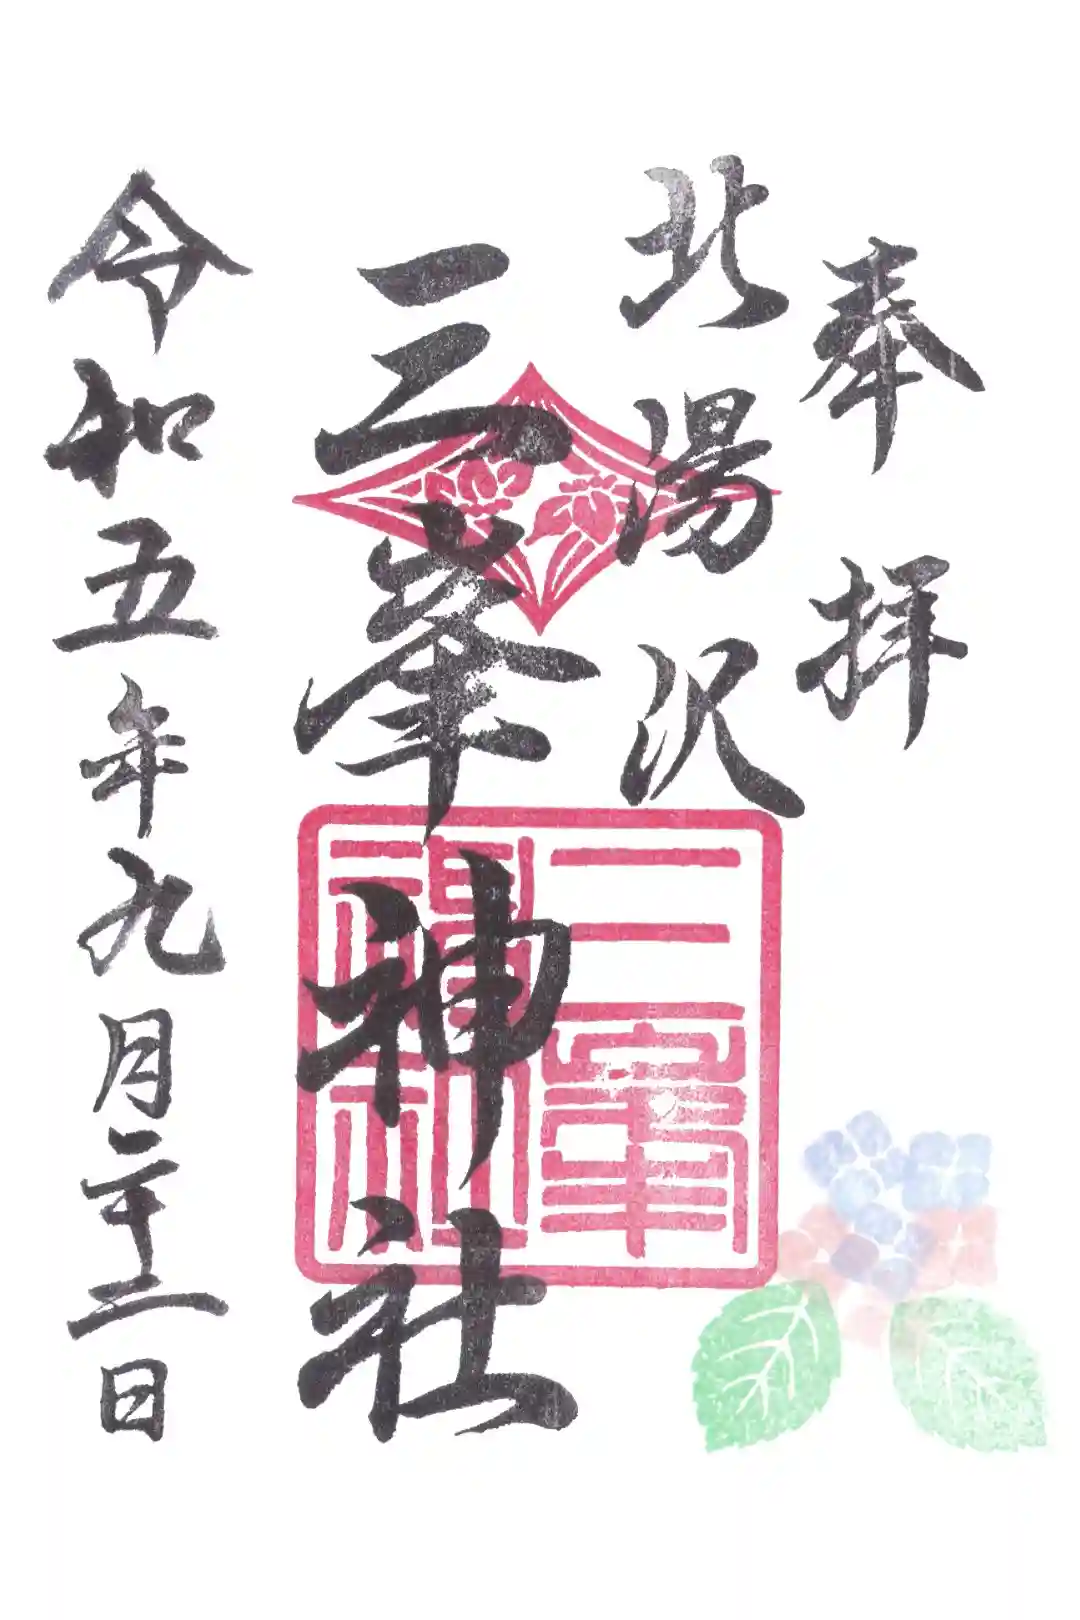 奉拝
北湯沢
三峯神社
三峯
神社
令和五年九月二十二日